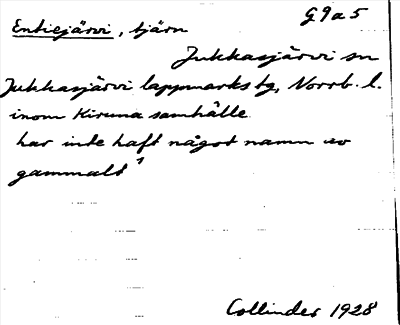 Entiejärvi, tjärn G9a5
Jukkasjärvi sn
Jukkasjärvi lappmarks tg, Norrb. l.
inom Kiruna samhälle
har inte haft något namn av
gammalt¹
Collinder 1928